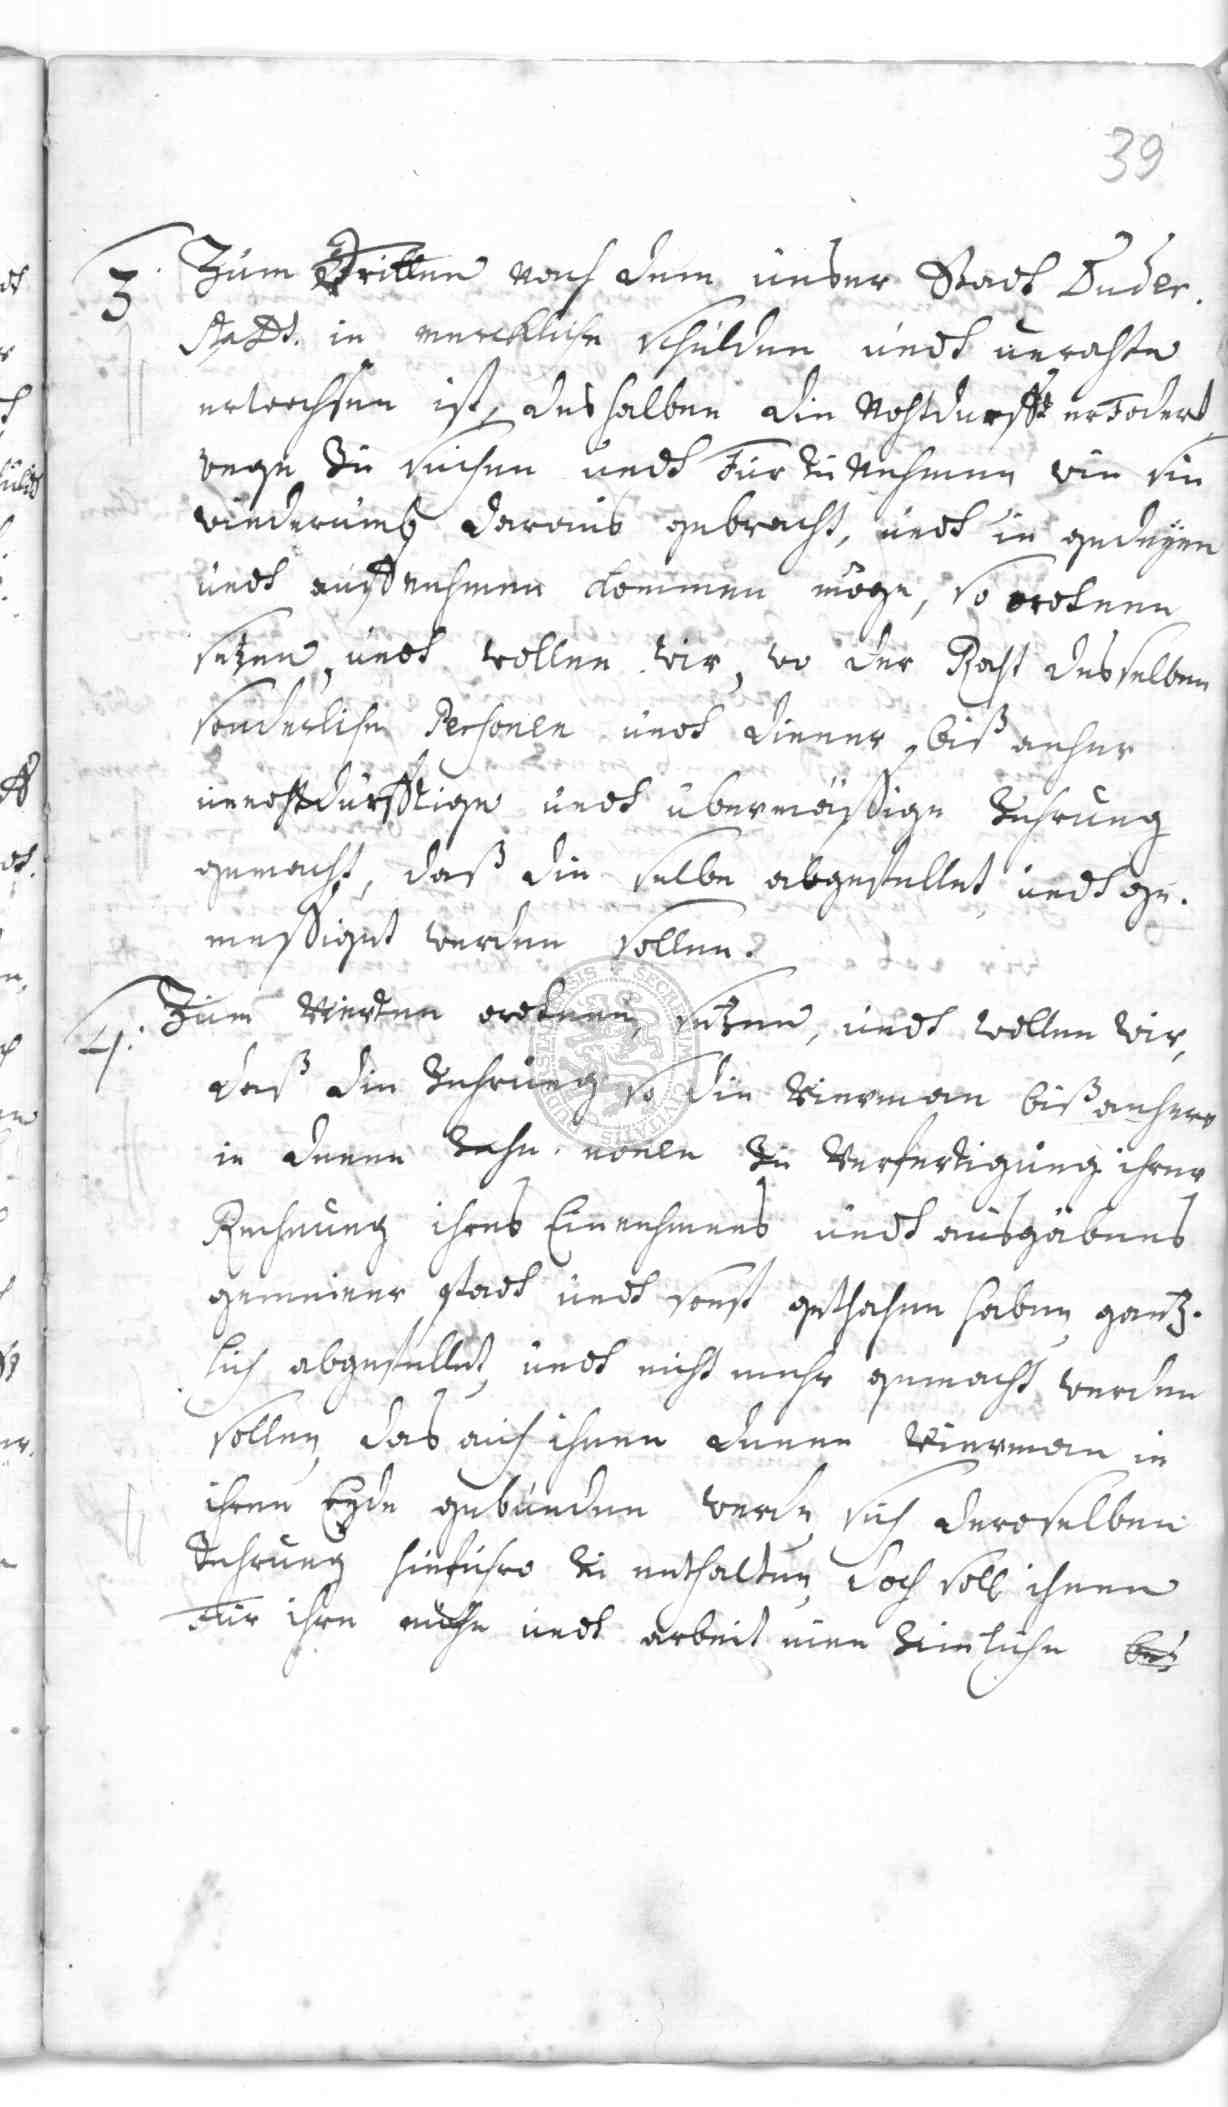 39
3. Zum Dritten nach dem unser Stadt Duder.
stadt. in merckliche schulden undt unrahte
erwachsen ist, deshalben die Nohtdurfft erfodert
wege zu suchen undt fürzunehmen wie sie
wiederumb daraus gebracht, undt in gedeyen
undt auffnehmen kommen möge, so ordenen
setzen, undt wollen wir, wo der Raht desselben
sonderliche Personen undt diener, biß anher
unnohtdürfftige undt übermässige Zehrung
gemacht, daß die selbe abgestellet, undt ge.
messiget werden sollen.
4. Zum Vierten ordenen, setzen, undt wollen wir,
daß die Zehrung so die Vierman bißanhero
in denen zu Verfertigung ihrer
Rechnung ihres Einnehmens undt ausgäbens
gemeiner stadt undt sonst gethahen haben, gantz.
lich abgestellet, undt nicht mehr gemacht werden
sollen, das auch ihnen denen Vierman in
ihren Eyde gebunden werde, sich deroselben
Zehrung hinfuhro zu enthalten, doch soll ihnen
für ihre mühe undt arbeit eine zimliche